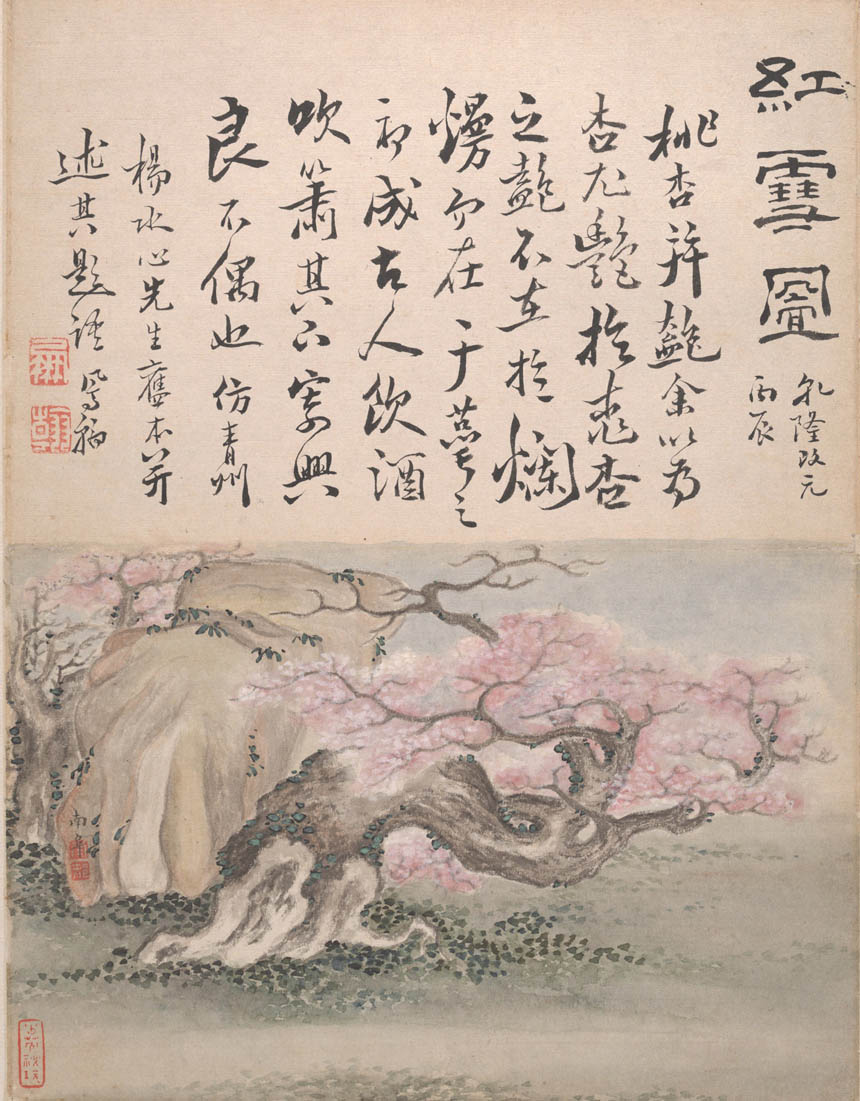 紅雪圖
乾隆改元
丙辰
桃杏并豔余以為
杏尤豔於桃杏
之豔不在於爛
熳而在于萼之
初成古人飲酒
吹簫其下寄興
良不偶也仿青州
楊水心先生舊本并
述其題語鳳翰
南阜